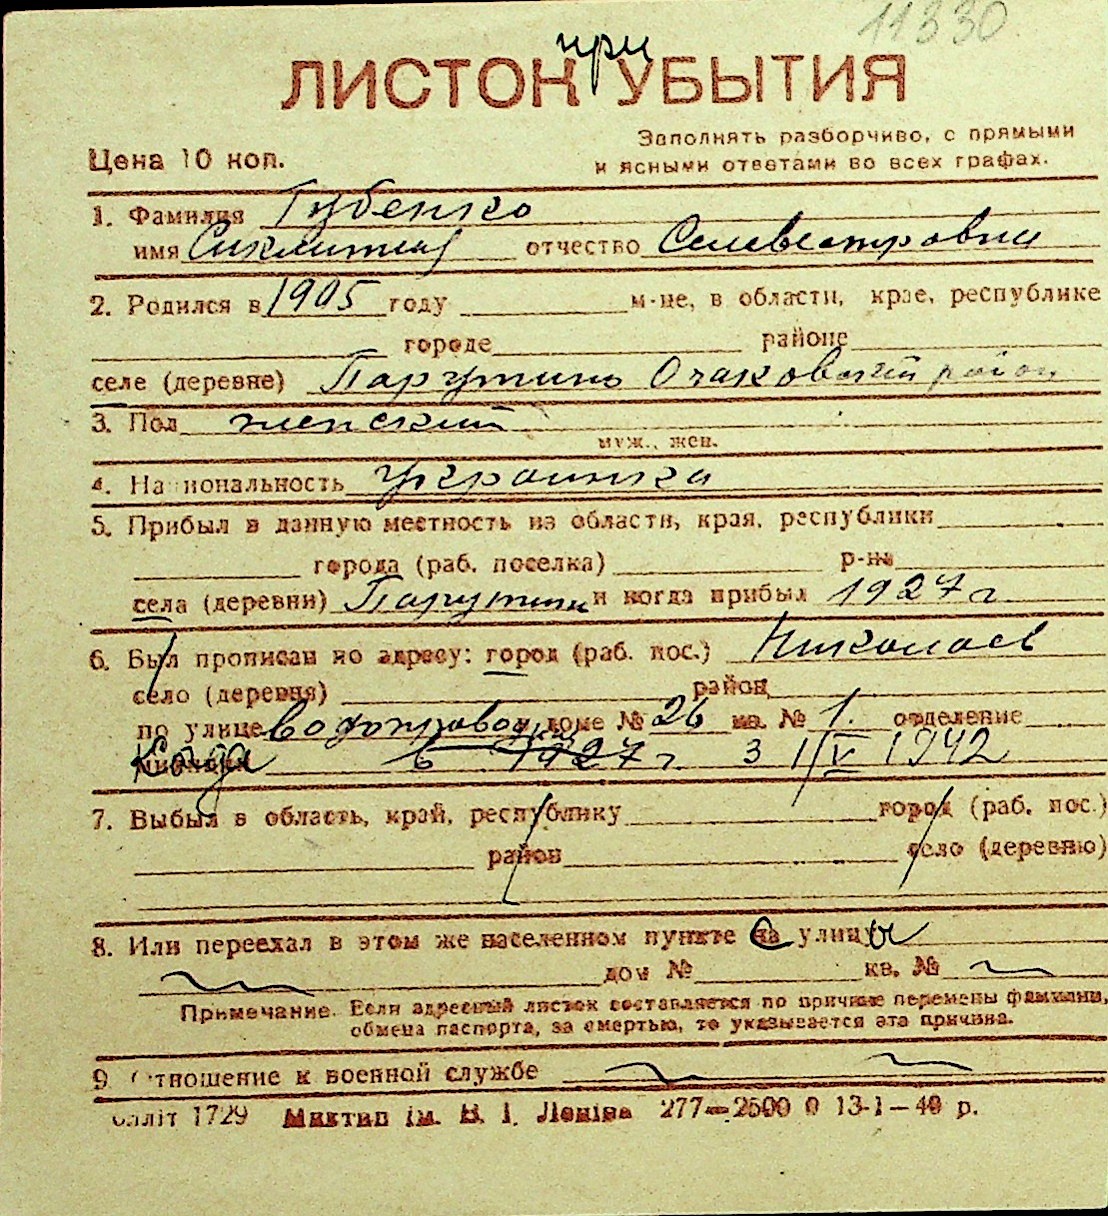 11330
при
ЛИСТОК УБЫТИЯ
Цена 10 коп.
Заполнять разборчиво, с прямыми
и ясными ответами во всех графах.
1. Фамилия Губенко
имя отчество Селевестровна
2. Родился в 1905 году м-це, в области, крае, республике
городе районе
селе (деревне) Парутино Очаковский район
3. Пол женский
муж., жен.
4. Национальность украинка
5. Прибыл в данную местность из области, края, республики
города (раб. поселка) р-на
села (деревни) Парутино и когда прибыл 1927 г
6. Был прописан по адресу: город (раб. пос.) Николаев
село (деревня) район
по улице водопроводн доме № 26 кв. № 1. отделение
милиции Когда в 1927 г. з 1/V 1942
7. Выбыл в область, край, республику город (раб. пос.)
район село (деревню)
8. Или переехал в этом же населенном пункте с улицы
дом № кв. №
Примечание. Если адресный листок составляется по причине перемены фамилии,
обмена паспорта, за смертью, то указывается эта причина.
9. Отношение к военной службе
Оллiт 1729 Миктип iм. В. I. Ленiна 277—2500 0 13-1—40 р.